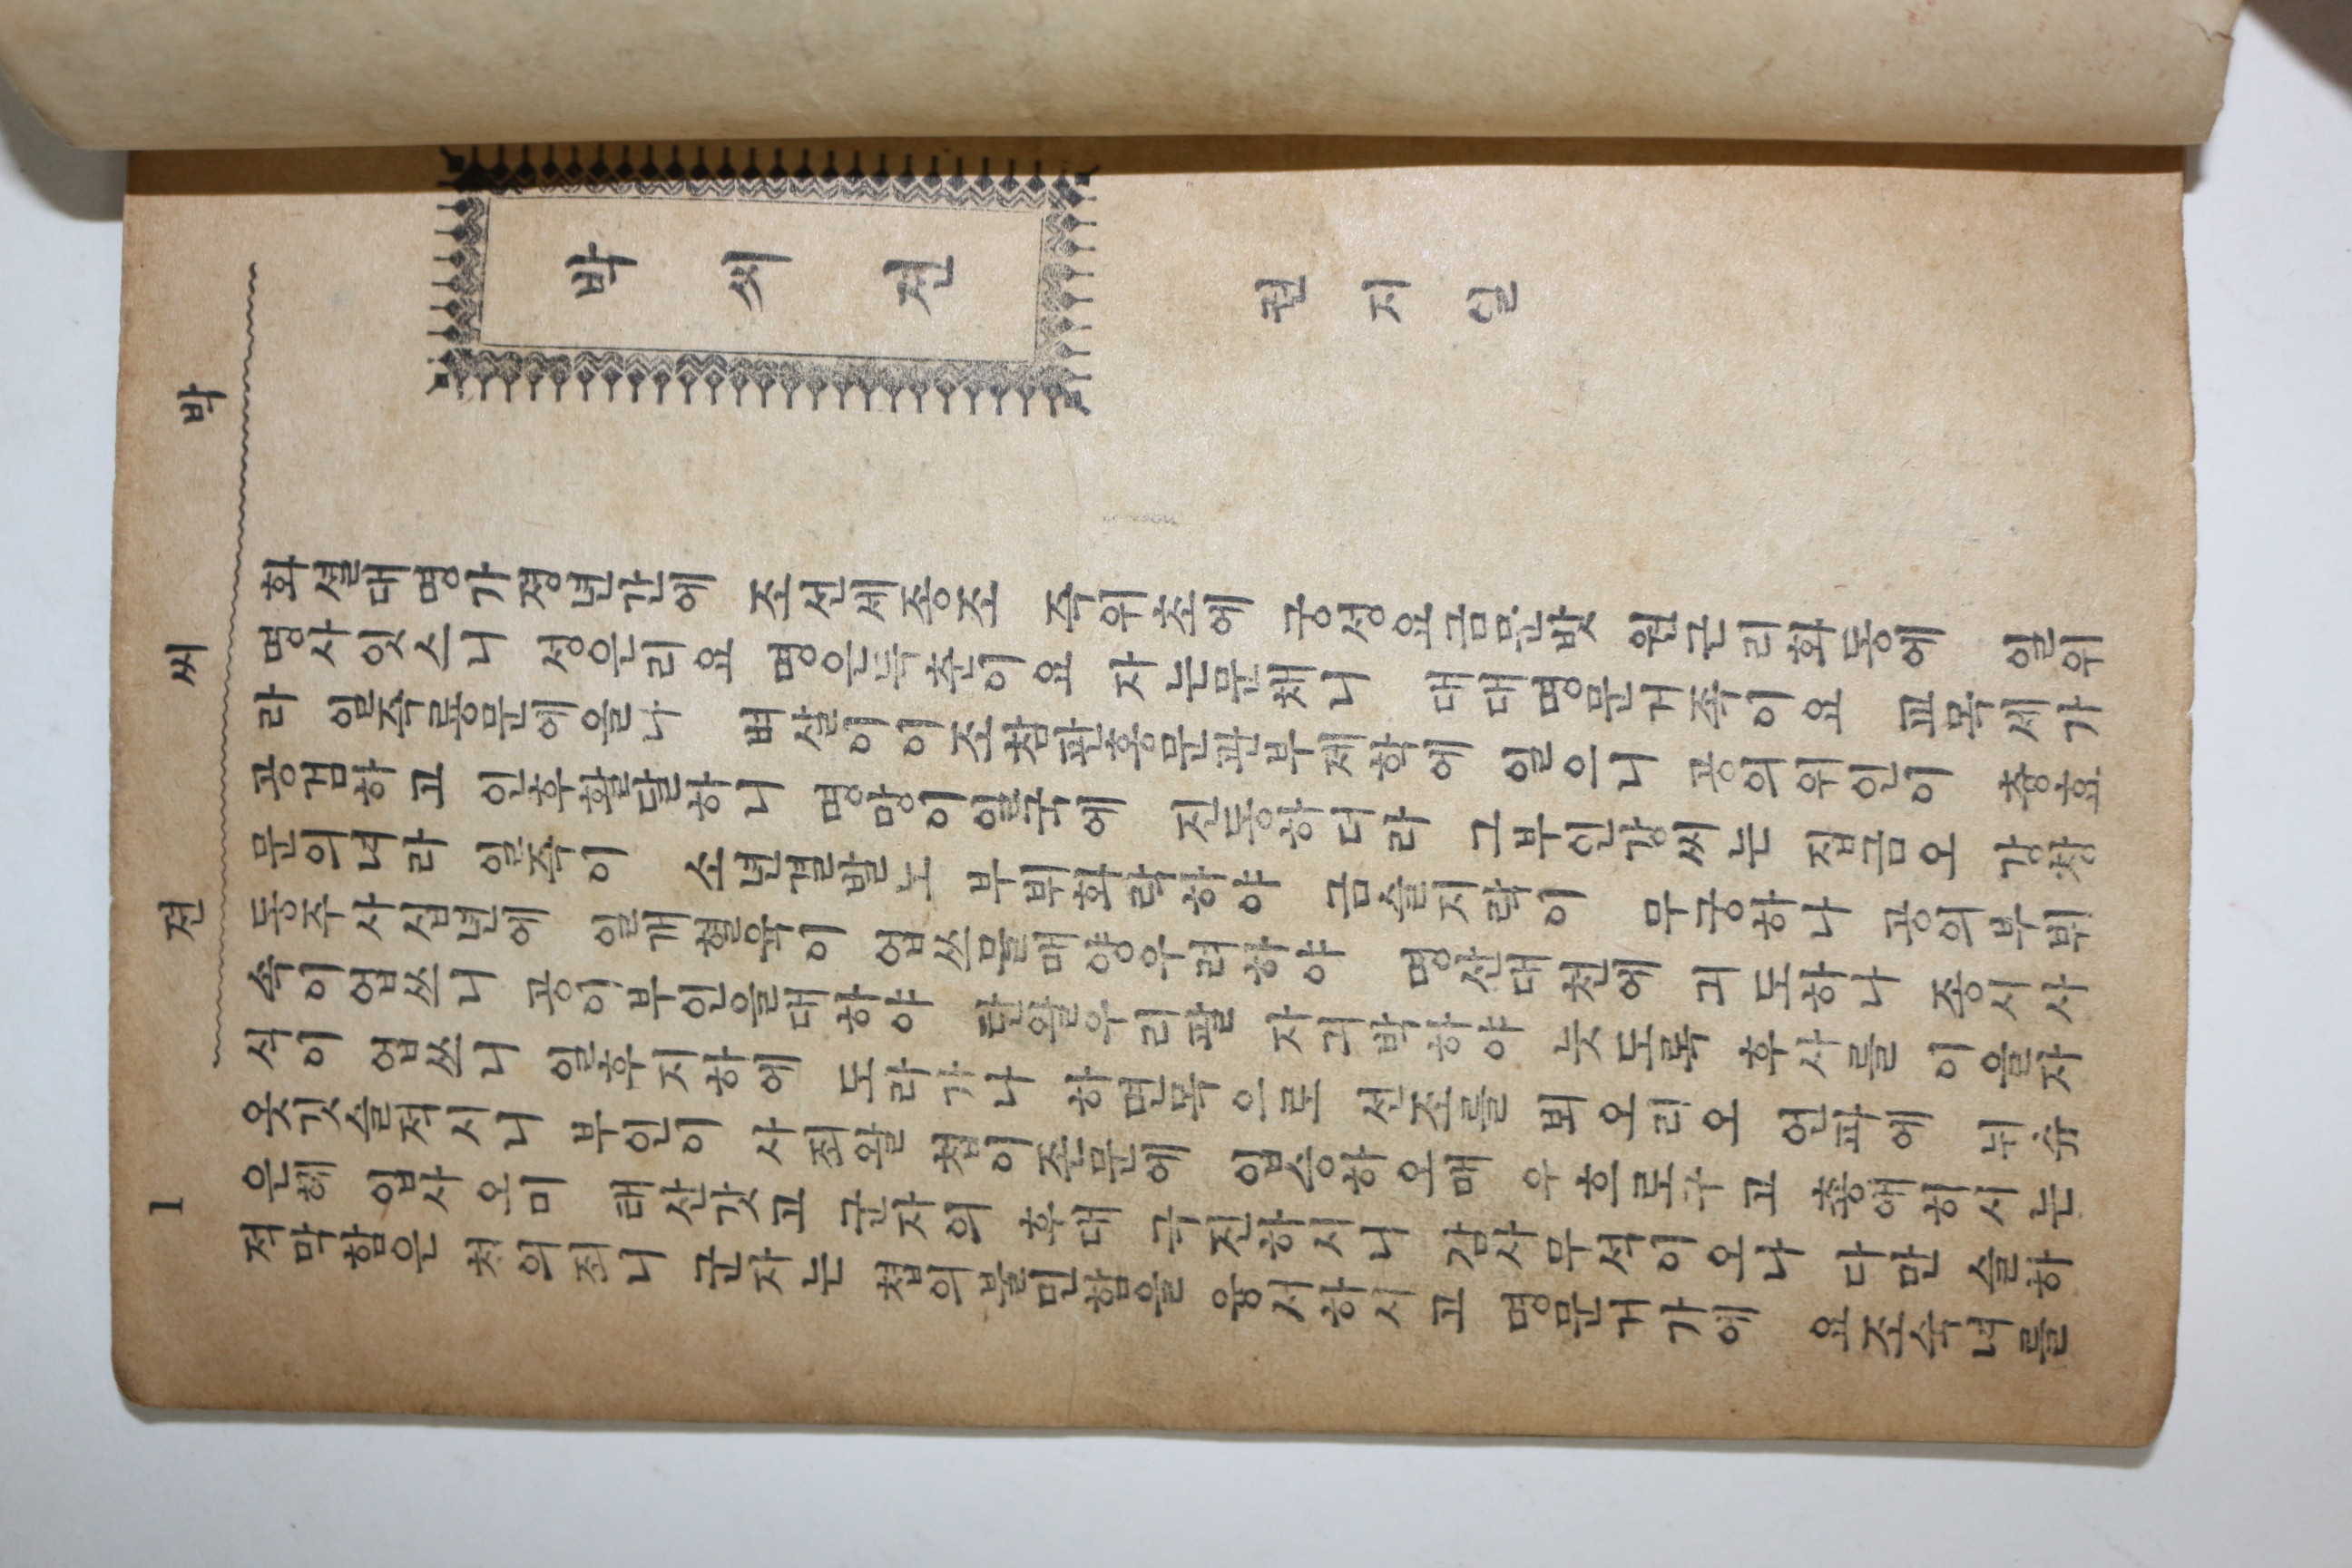 박 씨 전 1
박 씨 전
권 지 일
화셜대명가졍년간에 조선세종조 즉위초에 궁성요금문밧 원근리화동에 일위
명사잇스니 성은리요 명은득춘이요 자는문채니 대대명문거족이요 교목세가
라 일즉룡문에올나 벼살이이조참판홍문관부제학에 일으니 공의위인이 충효
공검하고 인후활달하니 명망이일국에 진동하더라 그부인강씨는 집금오 강창
문의녀라 일즉이 소년결발노 부뷔화락하야 금슬지락이 무궁하나 공의부뷔
동주사십년에 일개혈육이 업쓰믈매양우려하야 명산대천에 긔도하나 종시사
속이업쓰니 공이부인을대하야 탄왈우리팔 자긔박하야 늣도록 후사를 이을자
식이 업쓰니 일후지하에 도라가나 하면목으로 선조를 뵈오리오 언파에 뉘슈
옷깃슬적시니 부인이 사죄왈 첩이존문에 입승하오매 우흐로구고 총애히시는
은혜 입사오미 태산갓고 군자의 후대 극진하시니 감사무석이오나 다만 슬하
적막함은 첩의죄니 군자는 첩의불민함을 용서하시고 명문거가에 요조숙녀를